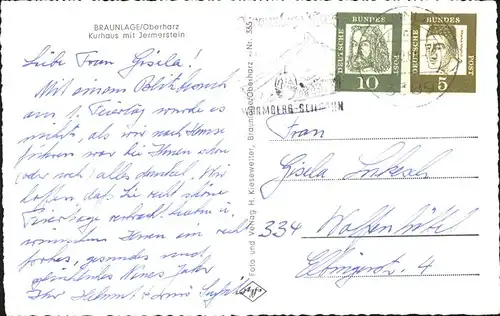 BRAUNLAGE/Oberharz
Kurhaus mit Jermerstein
Liebe Frau Gisela!
Mit einem
am 1. Feiertag wurde es
nichts, als wir nach Hause
fuhren war bei Ihnen schon
(oder noch) alles dunkel. Wir
hoffen, daß Sie recht schöne
Feiertage verbracht haben u.
wünschen Ihnen ein recht
frohes, gesundes und
Neues Jahr
Ihr Helmut &
Foto und Verlag H. Kiesewetter, Braunlage/Oberharz - Nr. 365
WURMBERG-SEILBAHN
DEUTSCHE BUNDESPOST
10
DEUTSCHE BUNDESPOST
5
Frau
Gisela
334 Wolfenbüttel
4